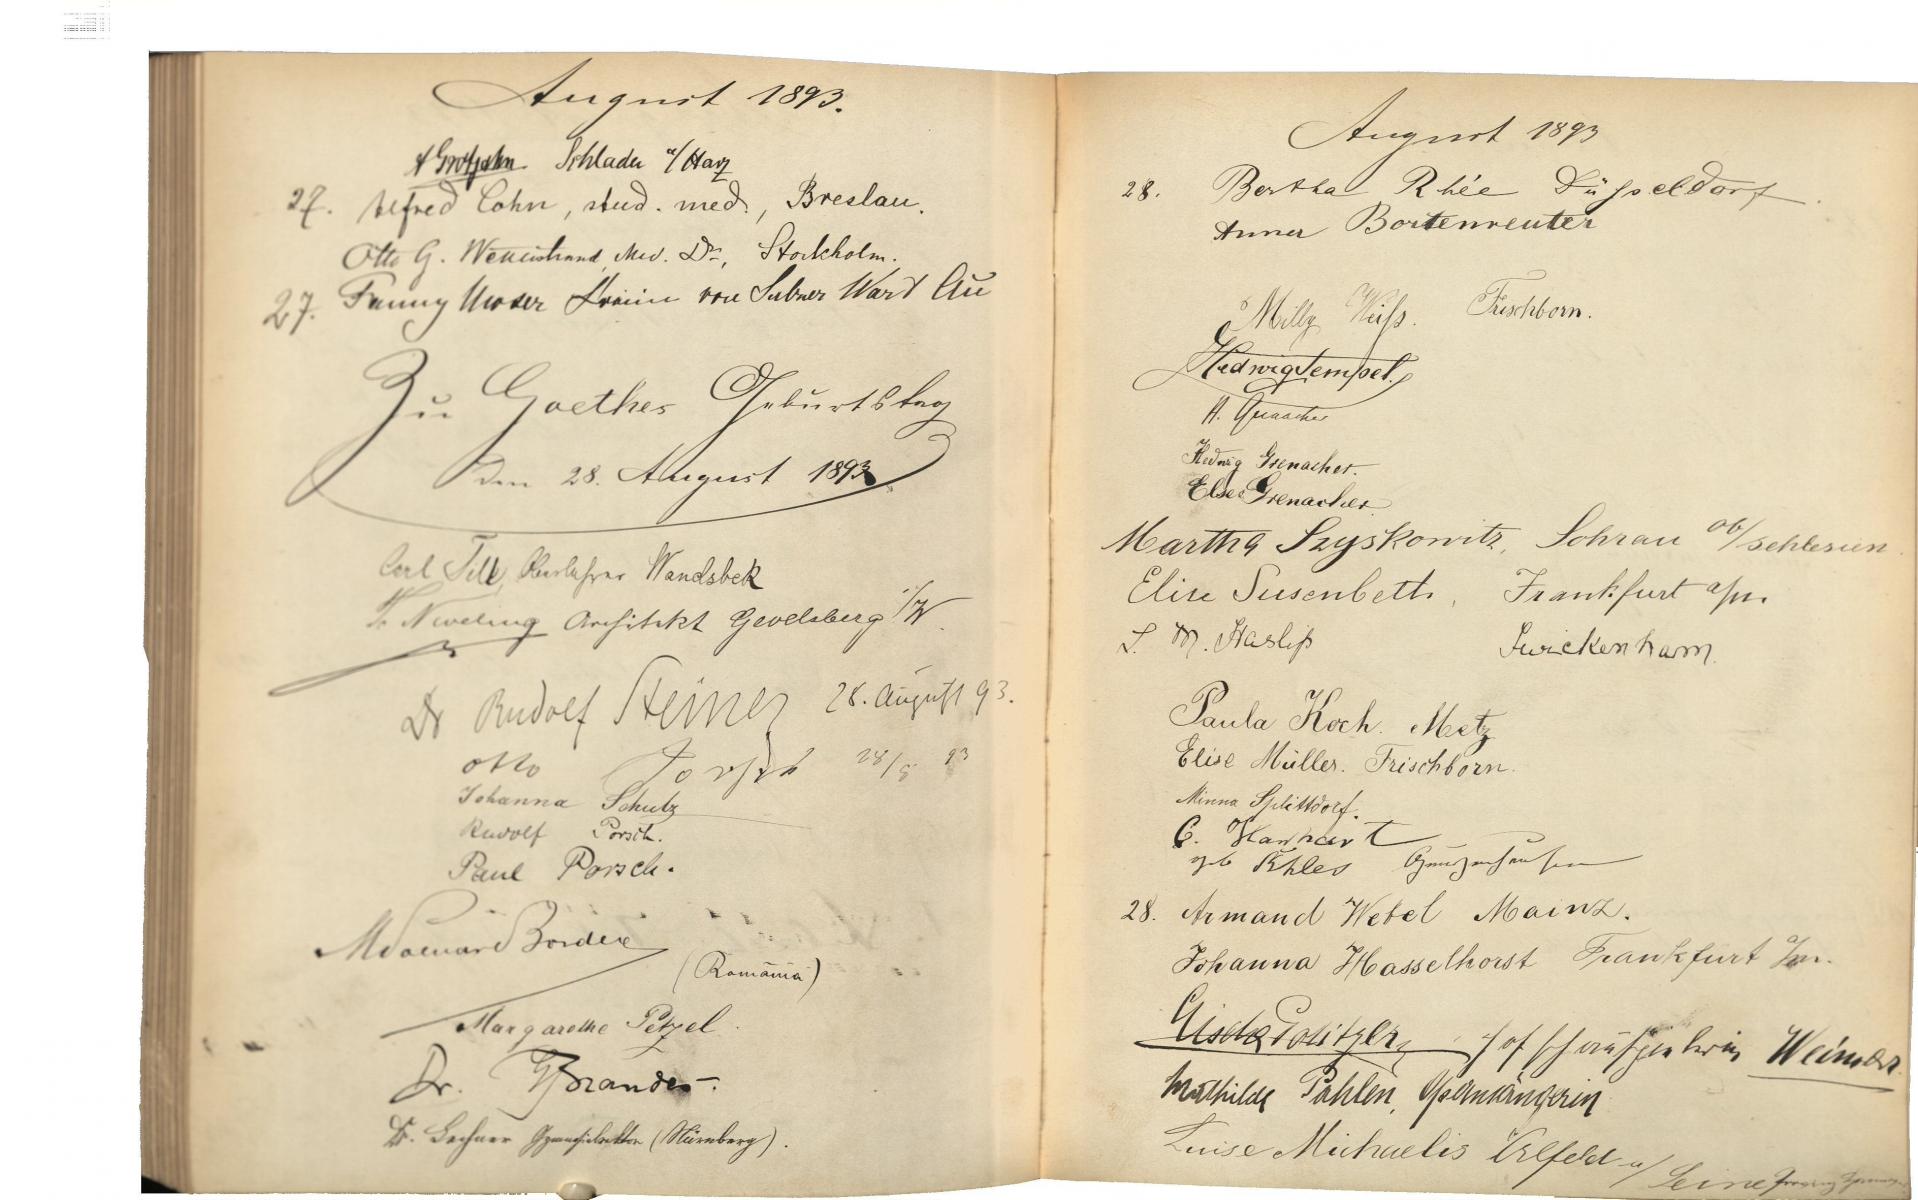 August 1893.
A Grotjahn Schladen a/Harz
27. Alfred Cohn, stud. med., Breslau.
Otto G. Wetterstrand, Med. Dr., Stockholm.
27. Fanny Moser von Wart Au
Zu Goethes Geburtstag
Den 28. August 1893
Carl Till, Oberlehrer Wandsbek
Fr. Niveling Architekt Gevelsberg i/W.
Dr Rudolf Steiner 28. August 93.
Otto Porsch 28/8 93
Johanna Schulz
Rudolf Porsch.
Paul Porsch.
(România)
Margarethe Petzel.
Dr. G Brandes.
Dr. Lechner (Nürnberg).
August 1893
28. Bertha Rhée Düsseldorf.
Anna Bortenreuter
Milly Weiß. Frischborn.
Hedwig Tempel.
H. Grenacher
Hedwig Grenacher.
Else Grenacher
Martha Szyskowitz, Sohrau Ob/Schlesien.
Elise Susenbeth, Frankfurt a/M.
L. M. Haslip Twickenham.
Paula Koch. Metz
Elise Müller. Frischborn.
Minna Splittdorf.
C. Hanhart
geb Ehles Gunzenhausen
28. Armand Wetel Mainz.
Johanna Hasselhorst Frankfurt a/M.
Gisela Politzer, Hofschauspielerin Weimar
Mathilde Pahlen, Opernsängerin
Luise Michaelis Alfeld a/Leine